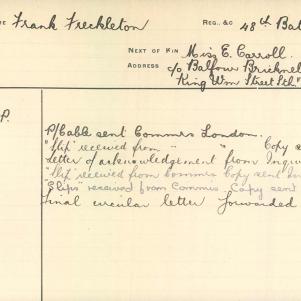 E Frank Freckleton REG., &C 48th Bat
NEXT OF KIN Miss E. Carroll.
ADDRESS c/o Balfour Bricknel
King Wm Street Sth
P.
P/Cable sent Commrs London.
"Slip" received from " " Copy s
Letter of acknowledgement from Inqui
"Slip" received from Commrs Copy sent In
"Slips" received from Commis. Copy sent
Final circular letter forwarded